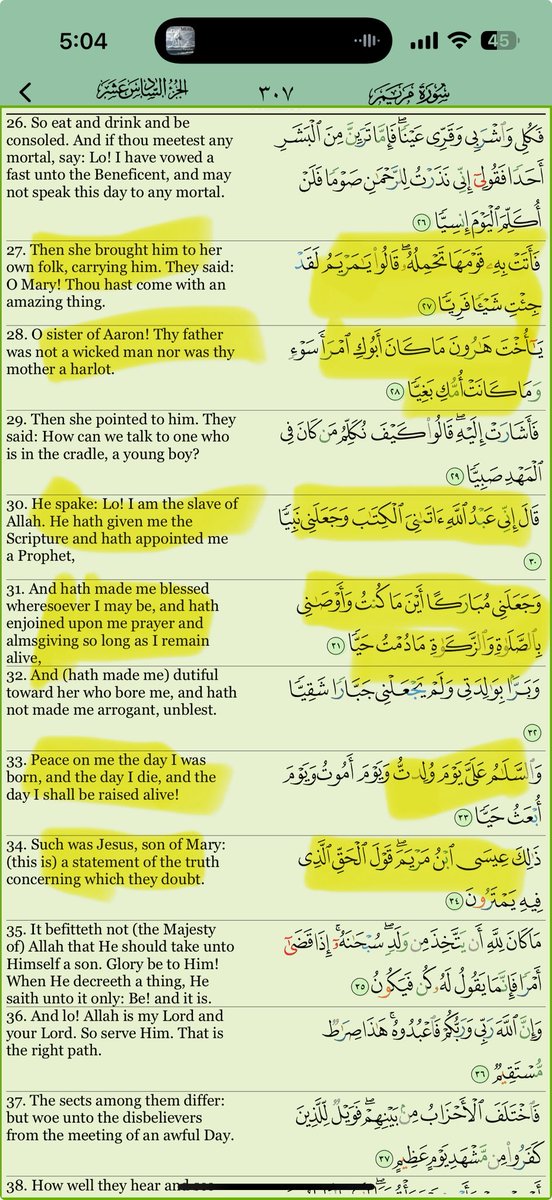 5:04
45
سُورَةُ مَرْيَم
٣٠٧
الجُزْءُ السَّادِسَ عَشَرَ
26. So eat and drink and be
consoled. And if thou meetest any
mortal, say: Lo! I have vowed a
fast unto the Beneficent, and may
not speak this day to any mortal.
فَكُلِي وَٱشْرَبِي وَقَرِّي عَيْنًا ۖ فَإِمَّا تَرَيِنَّ مِنَ ٱلْبَشَرِ
أَحَدًا فَقُولِيٓ إِنِّي نَذَرْتُ لِلرَّحْمَٰنِ صَوْمًا فَلَنْ
أُكَلِّمَ ٱلْيَوْمَ إِنسِيًّا ٢٦
27. Then she brought him to her
own folk, carrying him. They said:
O Mary! Thou hast come with an
amazing thing.
فَأَتَتْ بِهِۦ قَوْمَهَا تَحْمِلُهُۥ ۖ قَالُوا۟ يَٰمَرْيَمُ لَقَدْ
جِئْتِ شَيْـًٔا فَرِيًّا ٢٧
28. O sister of Aaron! Thy father
was not a wicked man nor was thy
mother a harlot.
يَٰٓأُخْتَ هَٰرُونَ مَا كَانَ أَبُوكِ ٱمْرَأَ سَوْءٍ
وَمَا كَانَتْ أُمُّكِ بَغِيًّا ٢٨
29. Then she pointed to him. They
said: How can we talk to one who
is in the cradle, a young boy?
فَأَشَارَتْ إِلَيْهِ ۖ قَالُوا۟ كَيْفَ نُكَلِّمُ مَن كَانَ فِي
ٱلْمَهْدِ صَبِيًّا ٢٩
30. He spake: Lo! I am the slave of
Allah. He hath given me the
Scripture and hath appointed me
a Prophet,
قَالَ إِنِّي عَبْدُ ٱللَّهِ ءَاتَىٰنِيَ ٱلْكِتَٰبَ وَجَعَلَنِي نَبِيًّا
٣٠
31. And hath made me blessed
wheresoever I may be, and hath
enjoined upon me prayer and
almsgiving so long as I remain
alive,
وَجَعَلَنِي مُبَارَكًا أَيْنَ مَا كُنتُ وَأَوْصَٰنِي
بِٱلصَّلَوٰةِ وَٱلزَّكَوٰةِ مَا دُمْتُ حَيًّا ٣١
32. And (hath made me) dutiful
toward her who bore me, and hath
not made me arrogant, unblest.
وَبَرًّۢا بِوَٰلِدَتِي وَلَمْ يَجْعَلْنِي جَبَّارًا شَقِيًّا
٣٢
33. Peace on me the day I was
born, and the day I die, and the
day I shall be raised alive!
وَٱلسَّلَٰمُ عَلَيَّ يَوْمَ وُلِدتُّ وَيَوْمَ أَمُوتُ وَيَوْمَ
أُبْعَثُ حَيًّا ٣٣
34. Such was Jesus, son of Mary:
(this is) a statement of the truth
concerning which they doubt.
ذَٰلِكَ عِيسَى ٱبْنُ مَرْيَمَ ۚ قَوْلَ ٱلْحَقِّ ٱلَّذِي
فِيهِ يَمْتَرُونَ ٣٤
35. It befitteth not (the Majesty
of) Allah that He should take unto
Himself a son. Glory be to Him!
When He decreeth a thing, He
saith unto it only: Be! and it is.
مَا كَانَ لِلَّهِ أَن يَتَّخِذَ مِن وَلَدٍ ۖ سُبْحَٰنَهُۥٓ ۚ إِذَا قَضَىٰٓ
أَمْرًا فَإِنَّمَا يَقُولُ لَهُۥ كُن فَيَكُونُ ٣٥
36. And lo! Allah is my Lord and
your Lord. So serve Him. That is
the right path.
وَإِنَّ ٱللَّهَ رَبِّي وَرَبُّكُمْ فَٱعْبُدُوهُ ۚ هَٰذَا صِرَٰطٌ
مُّسْتَقِيمٌ ٣٦
37. The sects among them differ:
but woe unto the disbelievers
from the meeting of an awful Day.
فَٱخْتَلَفَ ٱلْأَحْزَابُ مِنۢ بَيْنِهِمْ ۖ فَوَيْلٌ لِّلَّذِينَ
كَفَرُوا۟ مِن مَّشْهَدِ يَوْمٍ عَظِيمٍ ٣٧
38. How well they hear and